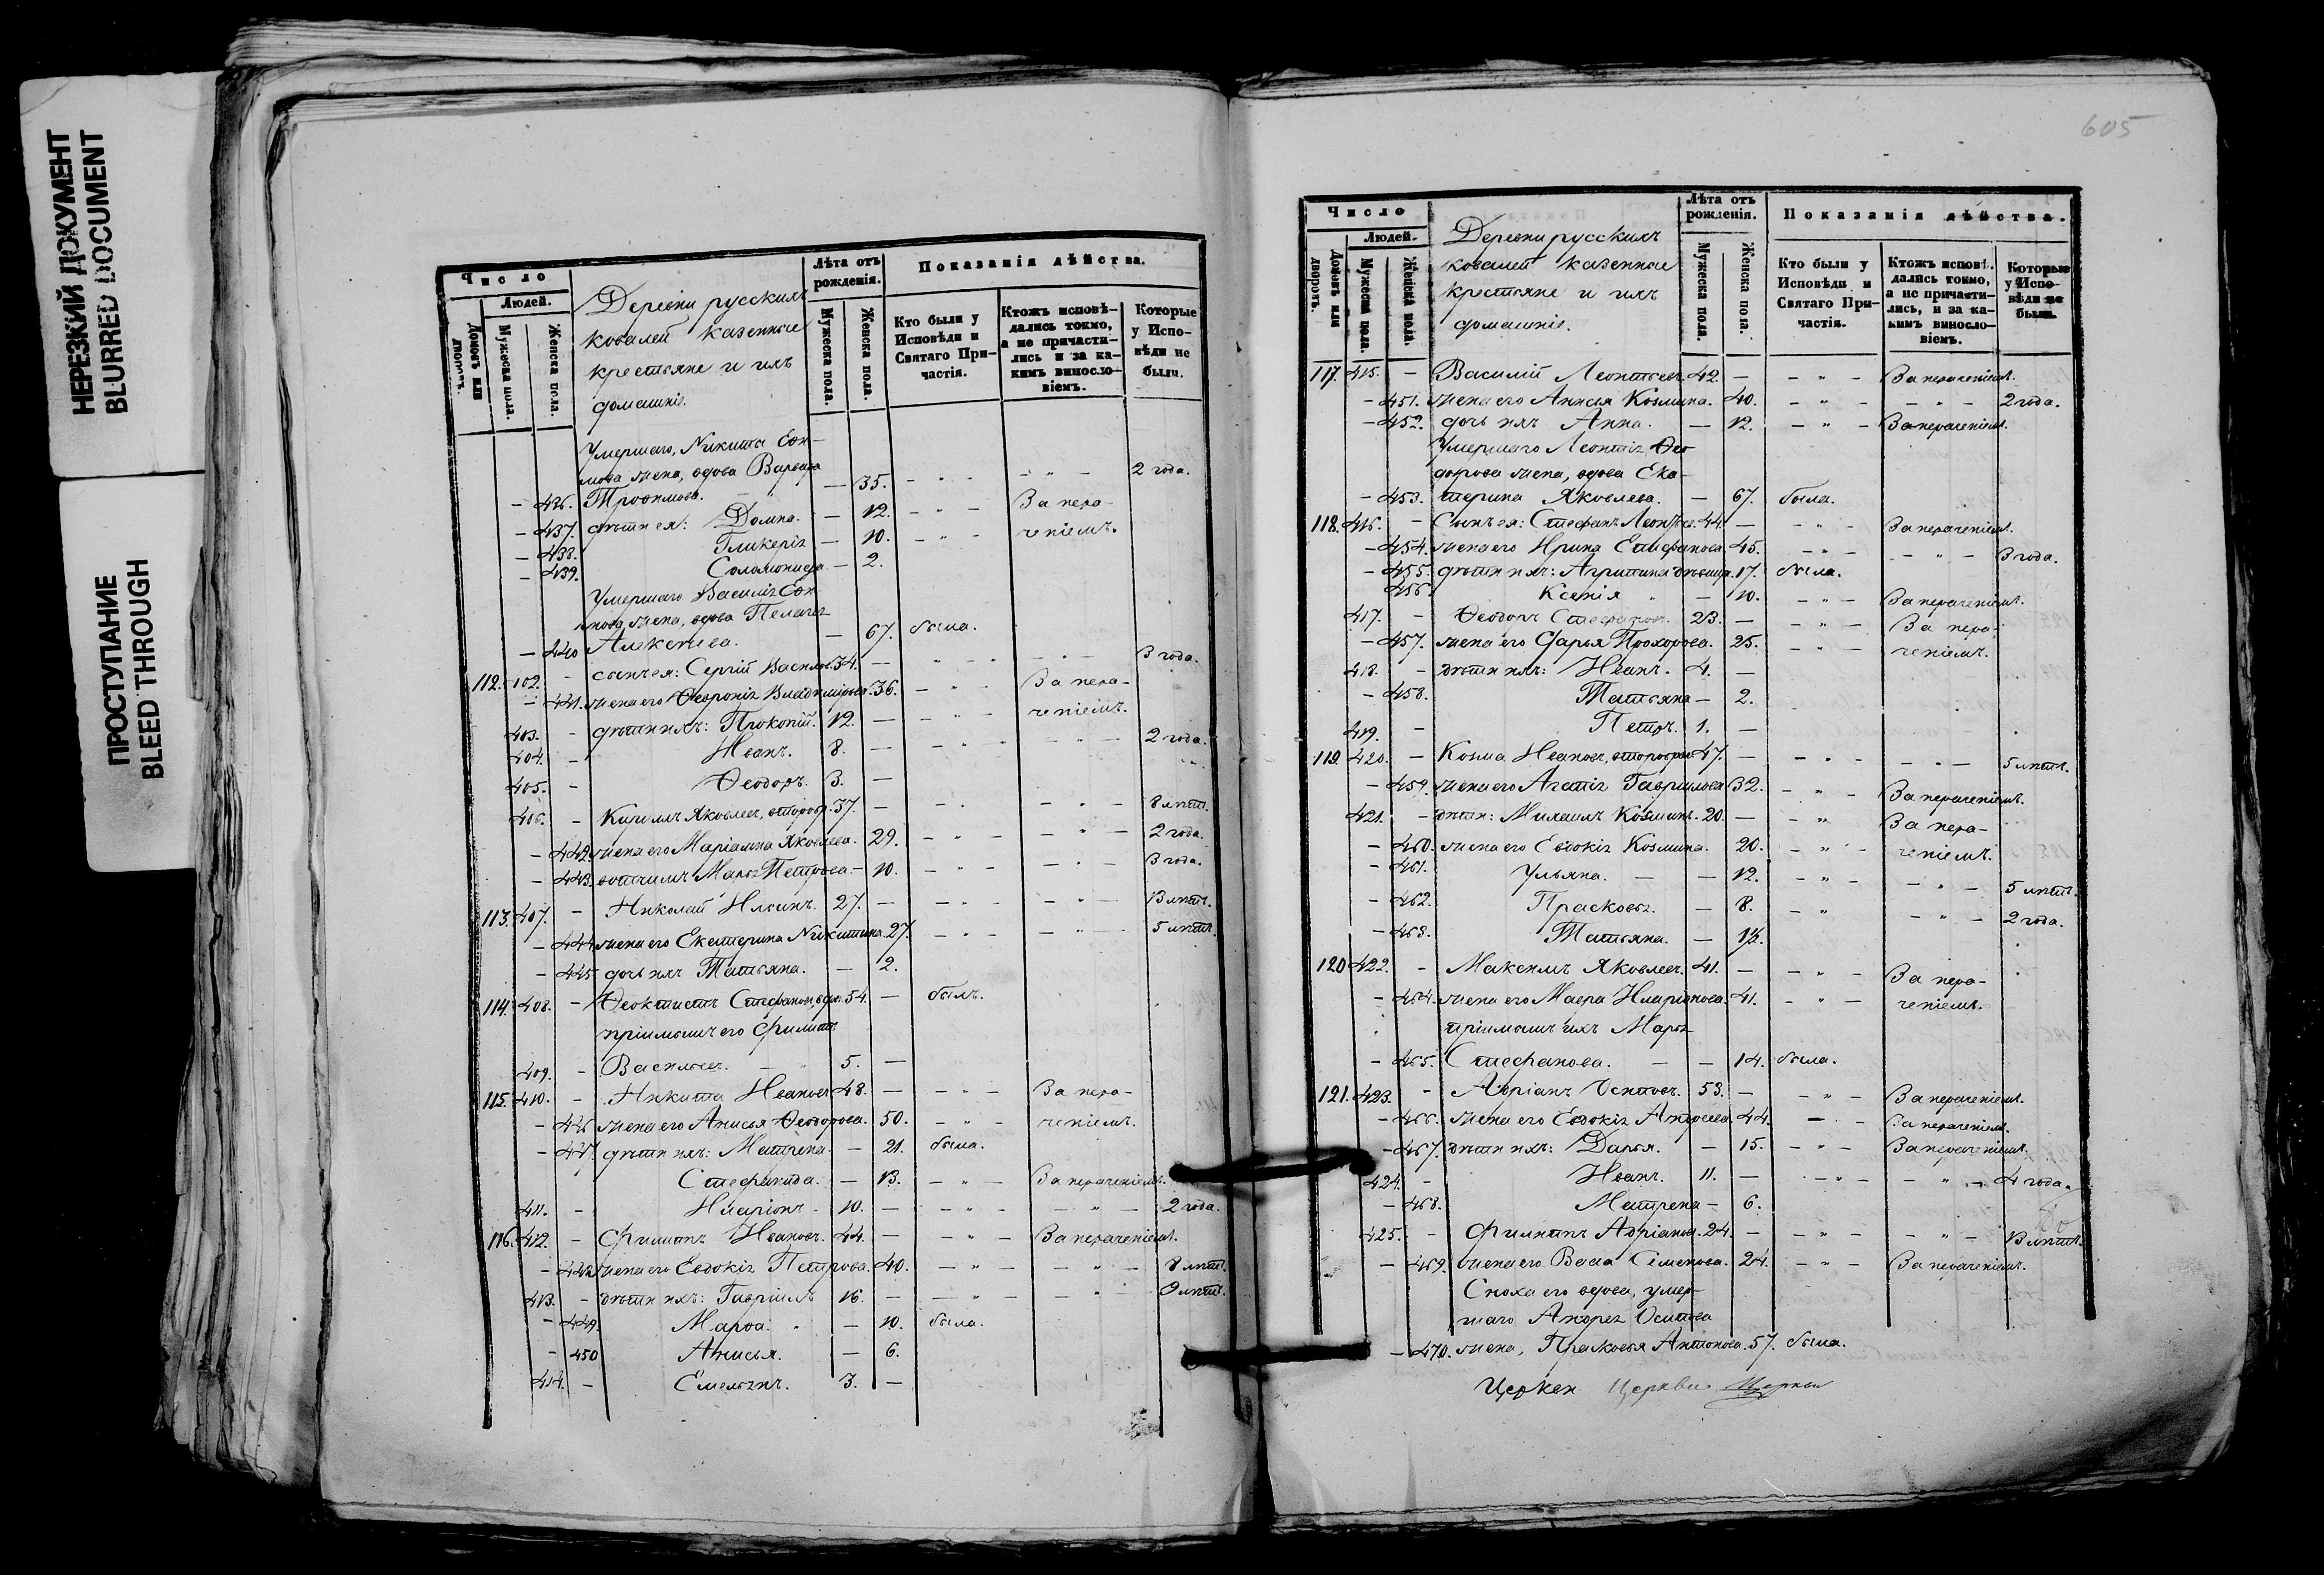 НЕРЕЗКИЙ ДОКУМЕНТ
BLURRED DOCUMENT
ПРОСТУПАНИЕ
BLEED THROUGH
Число
Людей.
Домовъ или дворовъ.
Мужеска пола.
Женска пола.
Деревни русскихъ
ковалей казенные
крестьяне и ихъ
домашніе.
Лѣта отъ рожденія.
Мужеска пола.
Женска пола.
Показанія дѣйства.
Кто были у Исповѣди и Святаго Причастія.
Ктожъ исповѣдались токмо, а не причастились и за какимъ винословіемъ.
Которые у Исповѣди не были.
Умершаго, Никиты
жена, вдова Варвара
— 436. Трофимова. — 35. 2 года.
— 437. дѣти ея: Домна. — 12. За нера-
— 438. Гликерія — 10. ченіемъ.
— 439. Соломонида — 2.
Умершаго Василія
жена, вдова Пелагея
— 440 Алексѣева. — 67. была.
112. 402. - сынъ ея: Сергій Васильев. 34. — 3 года.
— 441. жена его Ѳевронія Владимірова. 36. За нера-
403. - дѣти ихъ: Прокопій. 12. — ченіемъ.
404. - Иванъ. 8. — 2 года.
405. - Ѳеодоръ. 3. —
406. - Кириллъ Яковлев, 37. — 8 лѣтъ.
— 442. жена его Маріамна Яковлева. 29. 2 года.
— 443. Марѳа Петрова — 10. 3 года.
113. 407. - Николай Ильинъ. 27. — 13 лѣтъ.
— 444 жена его Екатерина Никитина 27. 5 лѣтъ.
— 445 дочь ихъ Татьяна. — 2.
114. 408. - Ѳеоктистъ Стефановъ, вдов. 54. — былъ.
пріимышъ его Филиппъ
409. - Васильев. 5. —
115. 410. - Никита Ивановъ 48. — За нера-
— 446 жена его Анисья Ѳеодорова. 50. ченіемъ.
— 447. дѣти ихъ: Матрена. — 21. была.
Стефанида. — 13. За нераченіемъ.
411. - Иларіонъ - 10. — 2 года.
116. 412. - Филиппъ Ивановъ. 44. — За нераченіемъ.
— 448 жена его Евдокія Петрова. 40. 8 лѣтъ.
413. - дѣти ихъ: Гавріилъ 16. — 9 лѣтъ.
— 449. Марѳа. — 10. была.
— 450 Анисья. — 6.
414. - Емельянъ. 3. —
605
Число
Людей.
Домовъ или дворовъ.
Мужеска пола.
Женска пола.
Деревни русскихъ
ковалей казенные
крестьяне и ихъ
домашніе.
Лѣта отъ рожденія.
Мужеска пола.
Женска пола.
Показанія дѣйства.
Кто были у Исповѣди и Святаго Причастія.
Ктожъ исповѣдались токмо, а не причастились, и за какимъ винословіемъ.
Которые у Исповѣди не были.
117. 415. — Василій Леонтьев. 42. — За нераченіемъ.
— 451. жена его Анисья Козмина. 40. 2 года.
— 452. дочь ихъ Анна. — 12. За нераченіемъ.
Умершаго Леонтія Ѳео-
дорова жена, вдова Ека-
— 453. терина Яковлева. — 67. была.
118. 416. — Сынъ ея: Стефанъ Леонтьев. 44. — За нераченіемъ.
— 454. жена его Ирина Стефанова. 45. 3 года.
— 455. дѣти ихъ: Агрипина дѣвица. 17. была.
456. Ксенія — 10. За нераченіемъ.
417. — Ѳеодоръ Стефановъ. 23. — За нера-
— 457. жена его Дарья Прохорова. 25. ченіемъ.
418. — дѣти ихъ: Иванъ. 4. —
— 458. Татьяна — 2.
419. — Петръ. 1. —
119. 420. — Козма Ивановъ, 47. — 5 лѣтъ.
— 459. жена его Агатія Гаврилова 32. За нераченіемъ.
421. — дѣти: Михаилъ Козминъ. 20. — За нера-
— 460. жена его Евдокія Козмина. 20. ченіемъ.
— 461. Ульяна. — 12. 5 лѣтъ.
— 462. Прасковья. — 8. 2 года.
— 463. Татьяна. —
120 422. - Максимъ Яковлев. 41. — За нера-
— 464. жена его Мавра Иларіонова. 41. ченіемъ.
пріимышъ ихъ Марѳа
— 465. Стефанова. — 14. была.
121. 423. - Адріанъ Осиповъ. 53. — За нераченіемъ.
— 466. жена его Евдокія Андреева. 44. За нераченіемъ.
— 467. дѣти ихъ: Дарья. — 15. За нераченіемъ.
424. - Иванъ. 11. — 4 года.
— 468. Матрена — 6.
425. - Филиппъ Адріанов. 24. — 13 лѣтъ.
— 469. жена его Васса Семенова. 24. За нераченіемъ.
Сноха его вдова, умер-
шаго Андрея Осипова
— 470. жена, Прасковья Антонова. 57. была.
Церкви